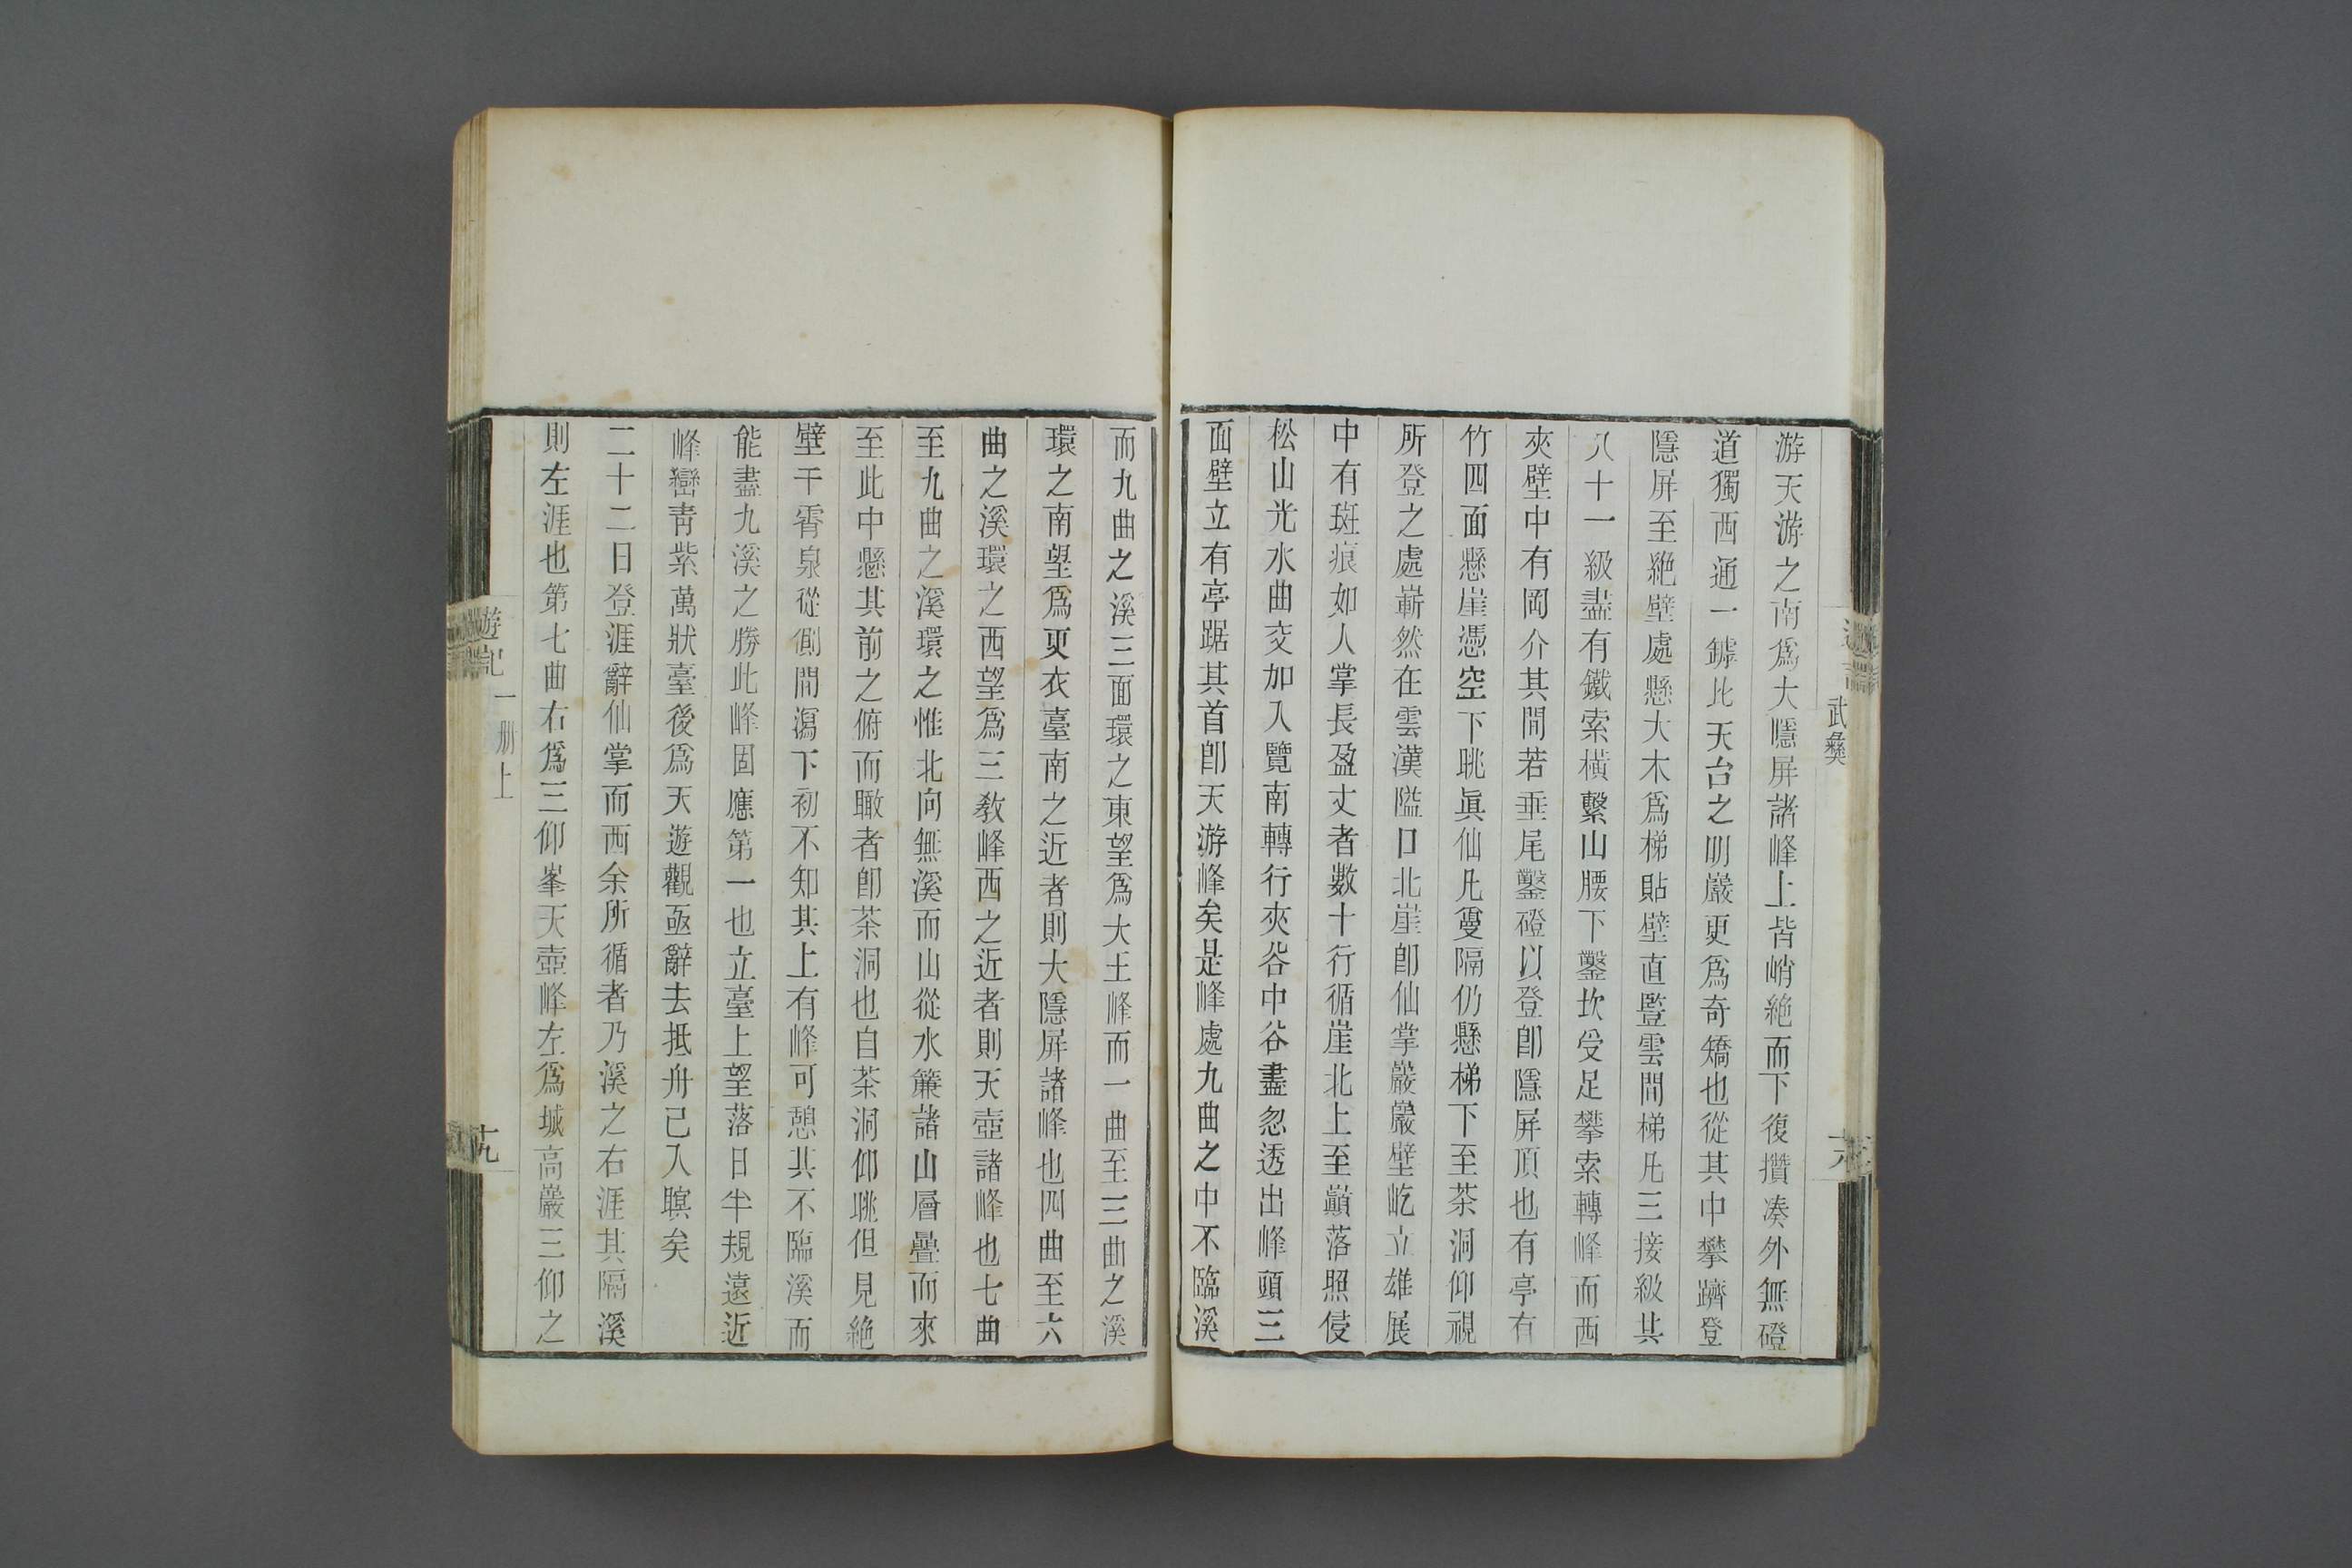 武彝
游天游之南爲大隱屏諸峰上皆峭絶而下復攢湊外無磴
道獨西通一罅比天台之明巖更爲奇矯也從其中攀躋登
隱屏至絶壁處懸大木爲梯貼壁直豎雲間梯凡三接級共
八十一級盡有鐵索橫繫山腰下鑿坎受足攀索轉峰而西
夾壁中有岡介其間若垂尾鑿磴以登卽隱屏頂也有亭有
竹四面懸崖憑空下眺眞仙凡夐隔仍懸梯下至茶洞仰視
所登之處嶄然在雲漢隘口北崖卽仙掌巖巖壁屹立雄展
中有斑痕如人掌長盈丈者數十行循崖北上至巔落照侵
松山光水曲交加入覽南轉行夾谷中谷盡忽透出峰頭三
面壁立有亭踞其首卽天游峰矣是峰處九曲之中不臨溪
而九曲之溪三面環之東望爲大王峰而一曲至三曲之溪
環之南望爲更衣臺南之近者則大隱屏諸峰也四曲至六
曲之溪環之西望爲三教峰西之近者則天壺諸峰也七曲
至九曲之溪環之惟北向無溪而山從水簾諸山層疊而來
至此中懸其前之俯而瞰者卽茶洞也自茶洞仰眺但見絶
壁干霄泉從側間瀉下初不知其上有峰可憩其不臨溪而
能盡九溪之勝此峰固應第一也立臺上望落日半規遠近
峰巒青紫萬狀臺後爲天遊觀亟辭去抵舟已入暝矣
二十二日登涯辭仙掌而西余所循者乃溪之右涯其隔溪
則左涯也第七曲右爲三仰峯天壺峰左爲城高巖三仰之
遊記
一册上
十九